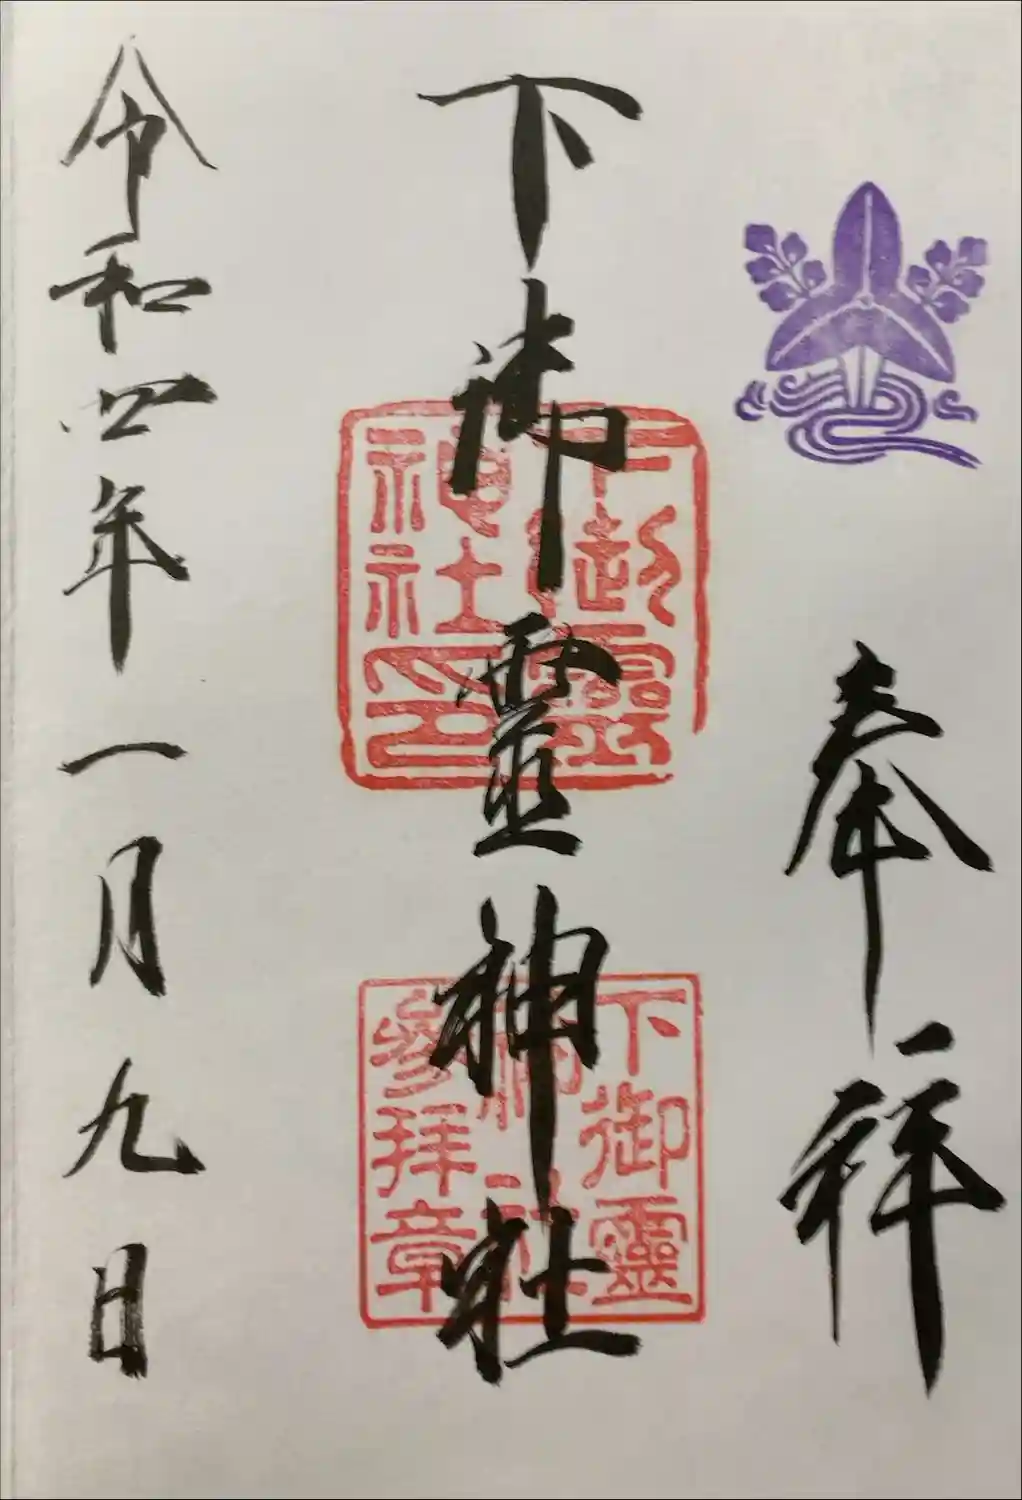 奉拝
下御靈神社
下御靈
神社印
下御靈
神社
参拝章
令和四年一月九日